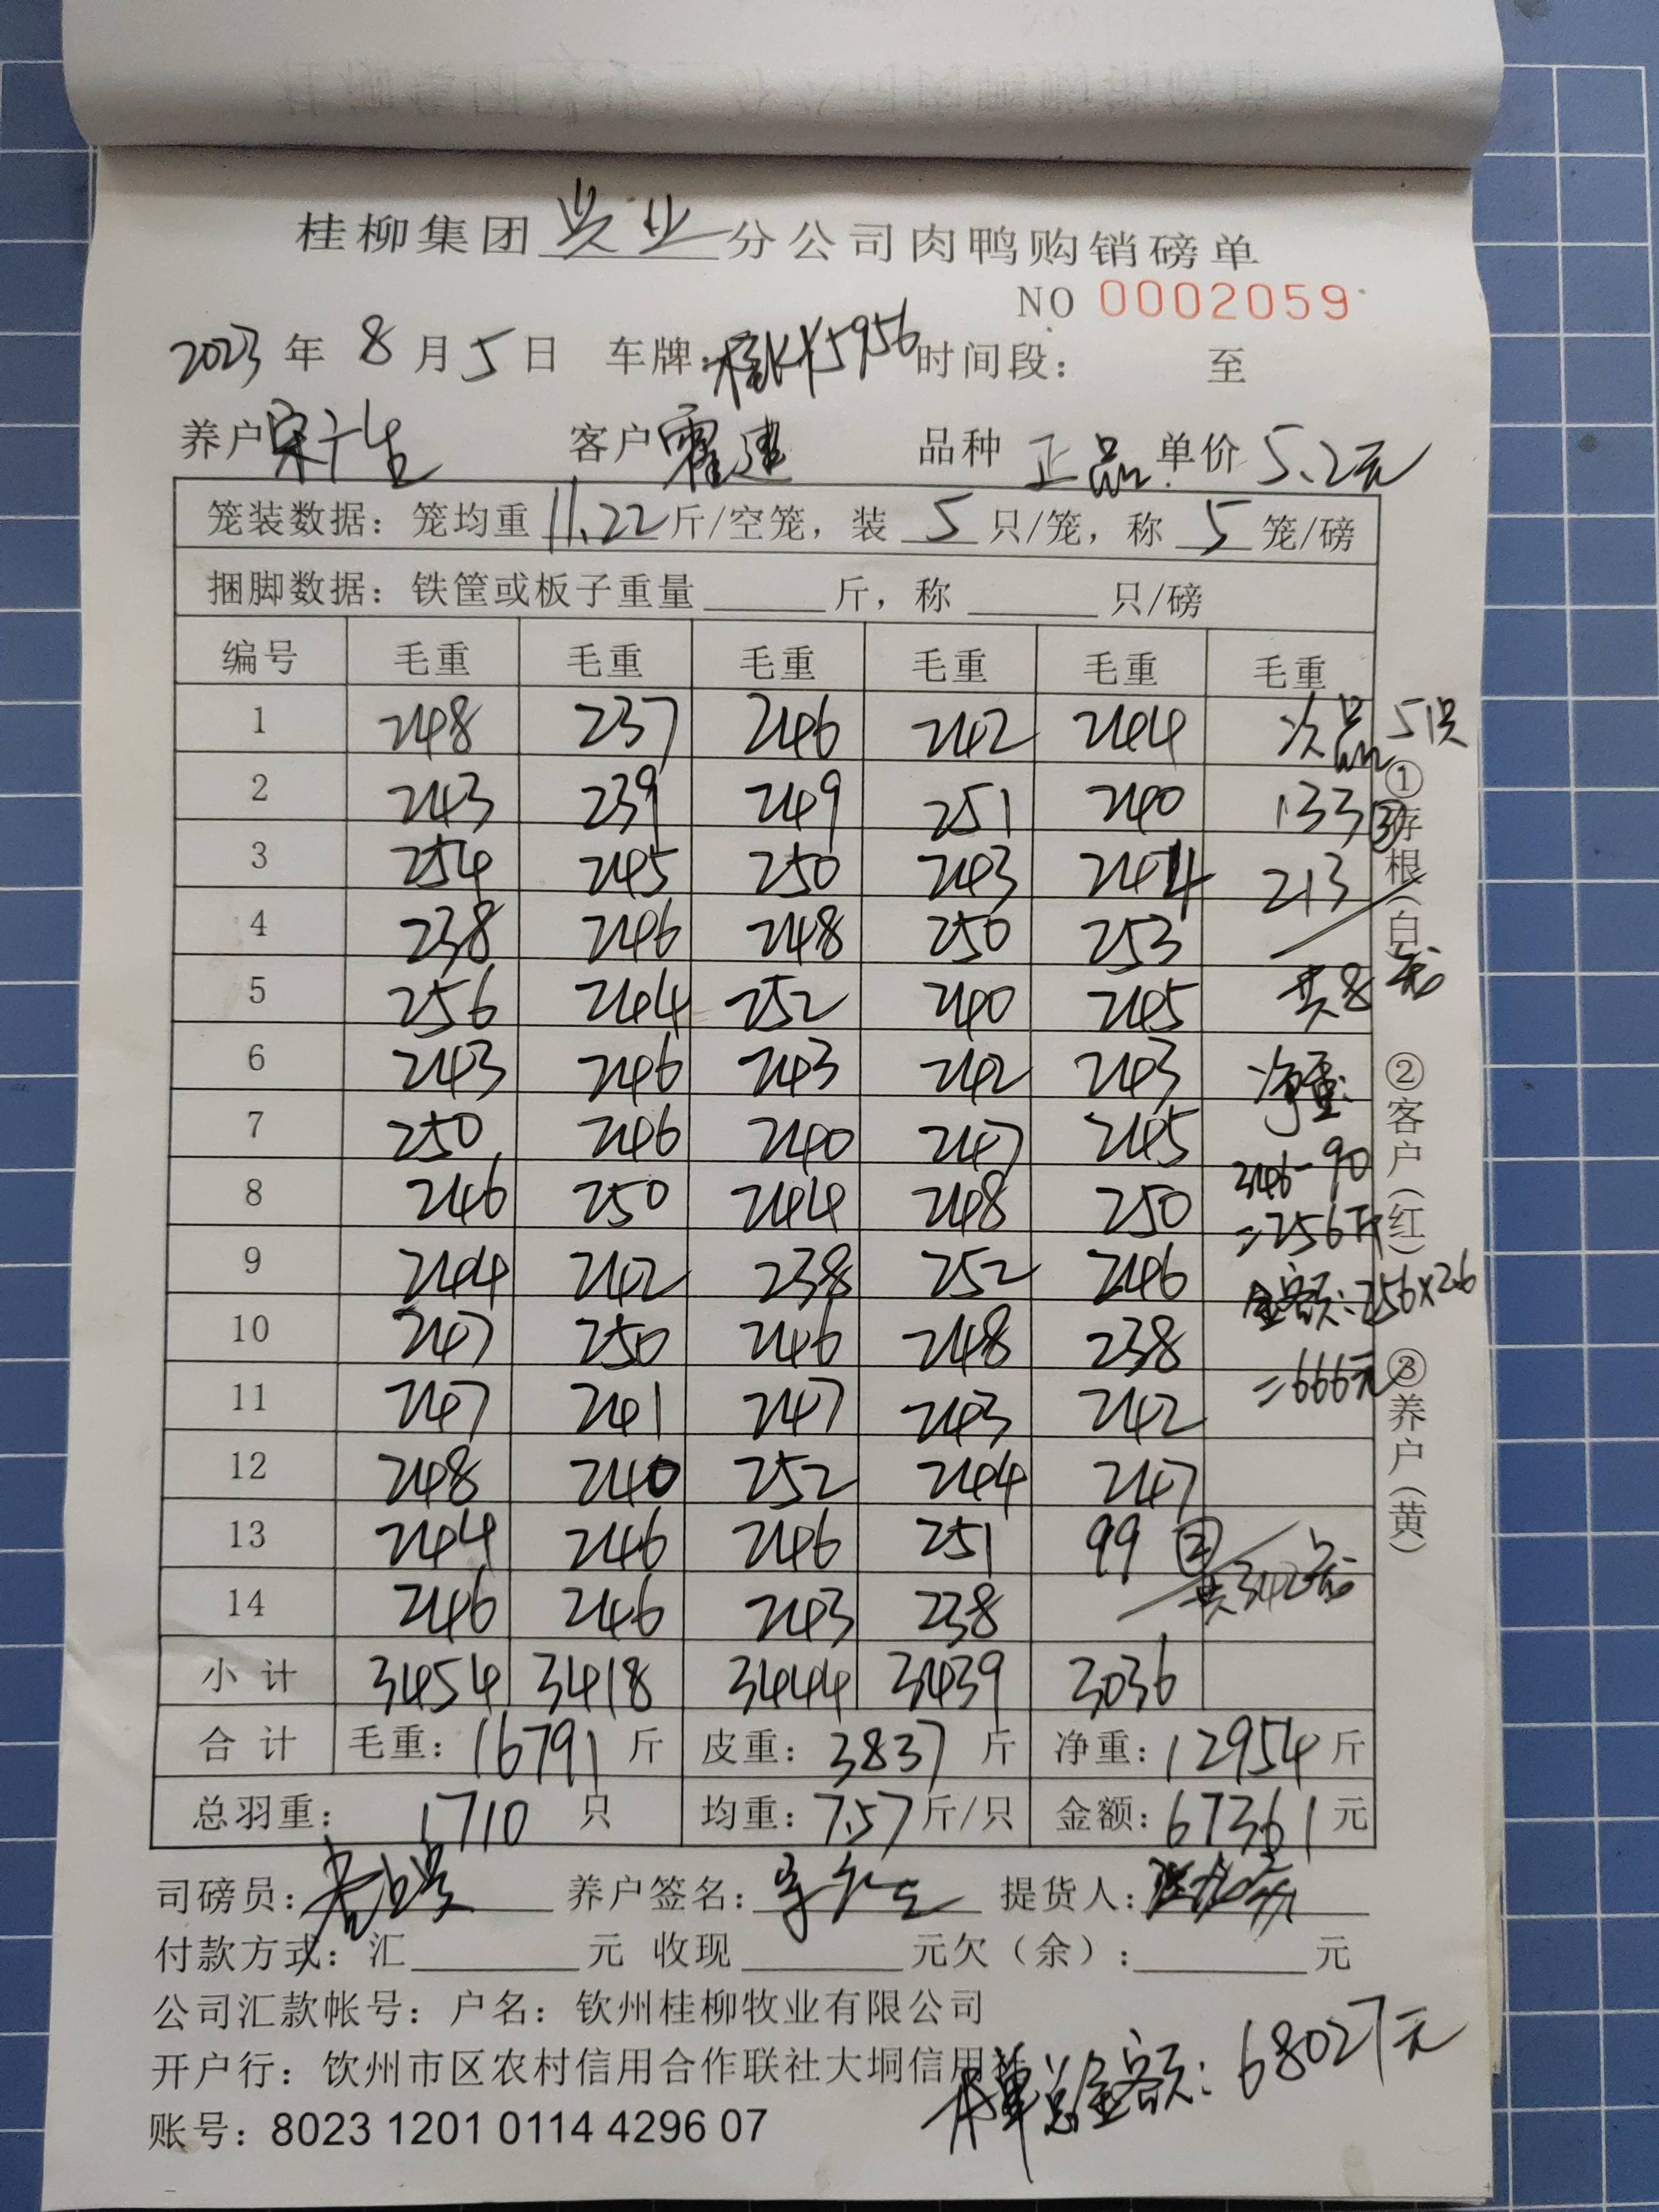 桂柳集团兴业分公司肉鸭购销磅单
NO 0002059
2023年8月5日 车牌:桂KY5956 时间段: 至
养户 宋广生 客户 霍建 品种 正品 单价 5.2元
笼装数据: 笼均重 11.22 斤/空笼, 装 5 只/笼, 称 5 笼/磅
捆脚数据: 铁筐或板子重量 斤, 称 只/磅
编号 毛重 毛重 毛重 毛重 毛重 毛重
1 248 237 246 242 244 次品 51只
2 243 239 249 251 240 133③
3 254 245 250 243 244 213
4 238 246 248 250 253
5 256 244 252 240 245 共8笼
6 243 246 243 242 243 净重:
7 250 246 240 247 245 346-90
8 246 250 244 248 250 =256斤
9 244 242 238 252 246 金额:256×2.6
10 247 250 246 248 238
11 247 241 247 243 242 =666元
12 248 240 252 244 247
13 244 246 246 251 99②
14 246 246 243 238 共342笼
小计 3454 3418 3444 3439 3036
合计 毛重: 16791 斤 皮重: 3837 斤 净重: 12954 斤
总羽重: 1710 只 均重: 7.57 斤/只 金额: 67361 元
司磅员: 养户签名: 宋广生 提货人:
付款方式: 汇 元 收现 元欠(余): 元
公司汇款帐号: 户名: 钦州桂柳牧业有限公司
开户行: 钦州市区农村信用合作联社大垌信用社
账号: 8023 1201 0114 4296 07
本单总金额: 68027元
①存根(白) ②客户(红) ③养户(黄)